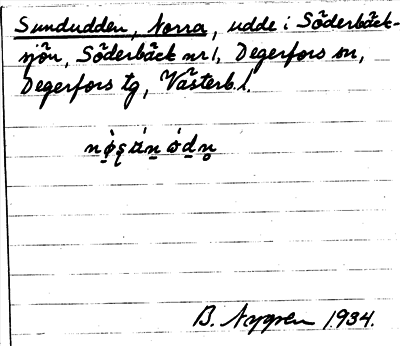 Sundudden, Norra, udde i Söderbäck-
sjön, Söderbäck nr 1, Degerfors sn,
Degerfors tg, Västerb. l.
B. Nygren 1934.